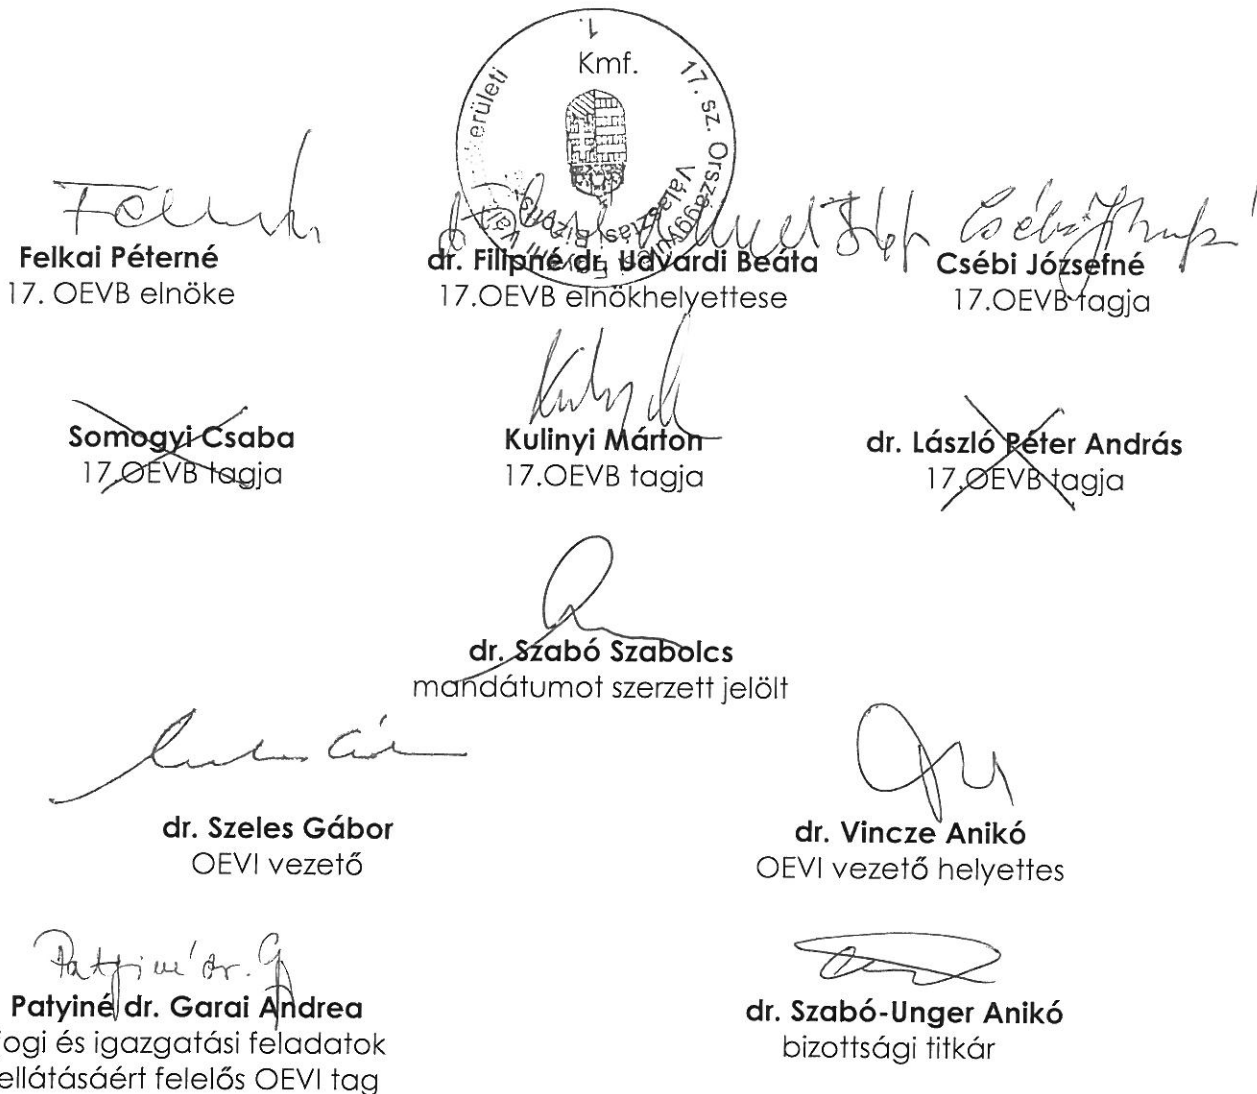 1.
Kmf.
17. sz. Országgyűlési Egyéni Vál kerületi
Választási Bizottság
Felkai Péterné
17. OEVB elnöke
dr. Filipné dr. Udvardi Beáta
17.OEVB elnökhelyettese
Csébi Józsefné
17.OEVB tagja
Somogyi Csaba
17.OEVB tagja
Kulinyi Márton
17.OEVB tagja
dr. László Péter András
17.OEVB tagja
dr. Szabó Szabolcs
mandátumot szerzett jelölt
dr. Szeles Gábor
OEVI vezető
dr. Vincze Anikó
OEVI vezető helyettes
Patyiné dr. G
Patyiné dr. Garai Andrea
jogi és igazgatási feladatok
ellátásáért felelős OEVI tag
dr. Szabó-Unger Anikó
bizottsági titkár